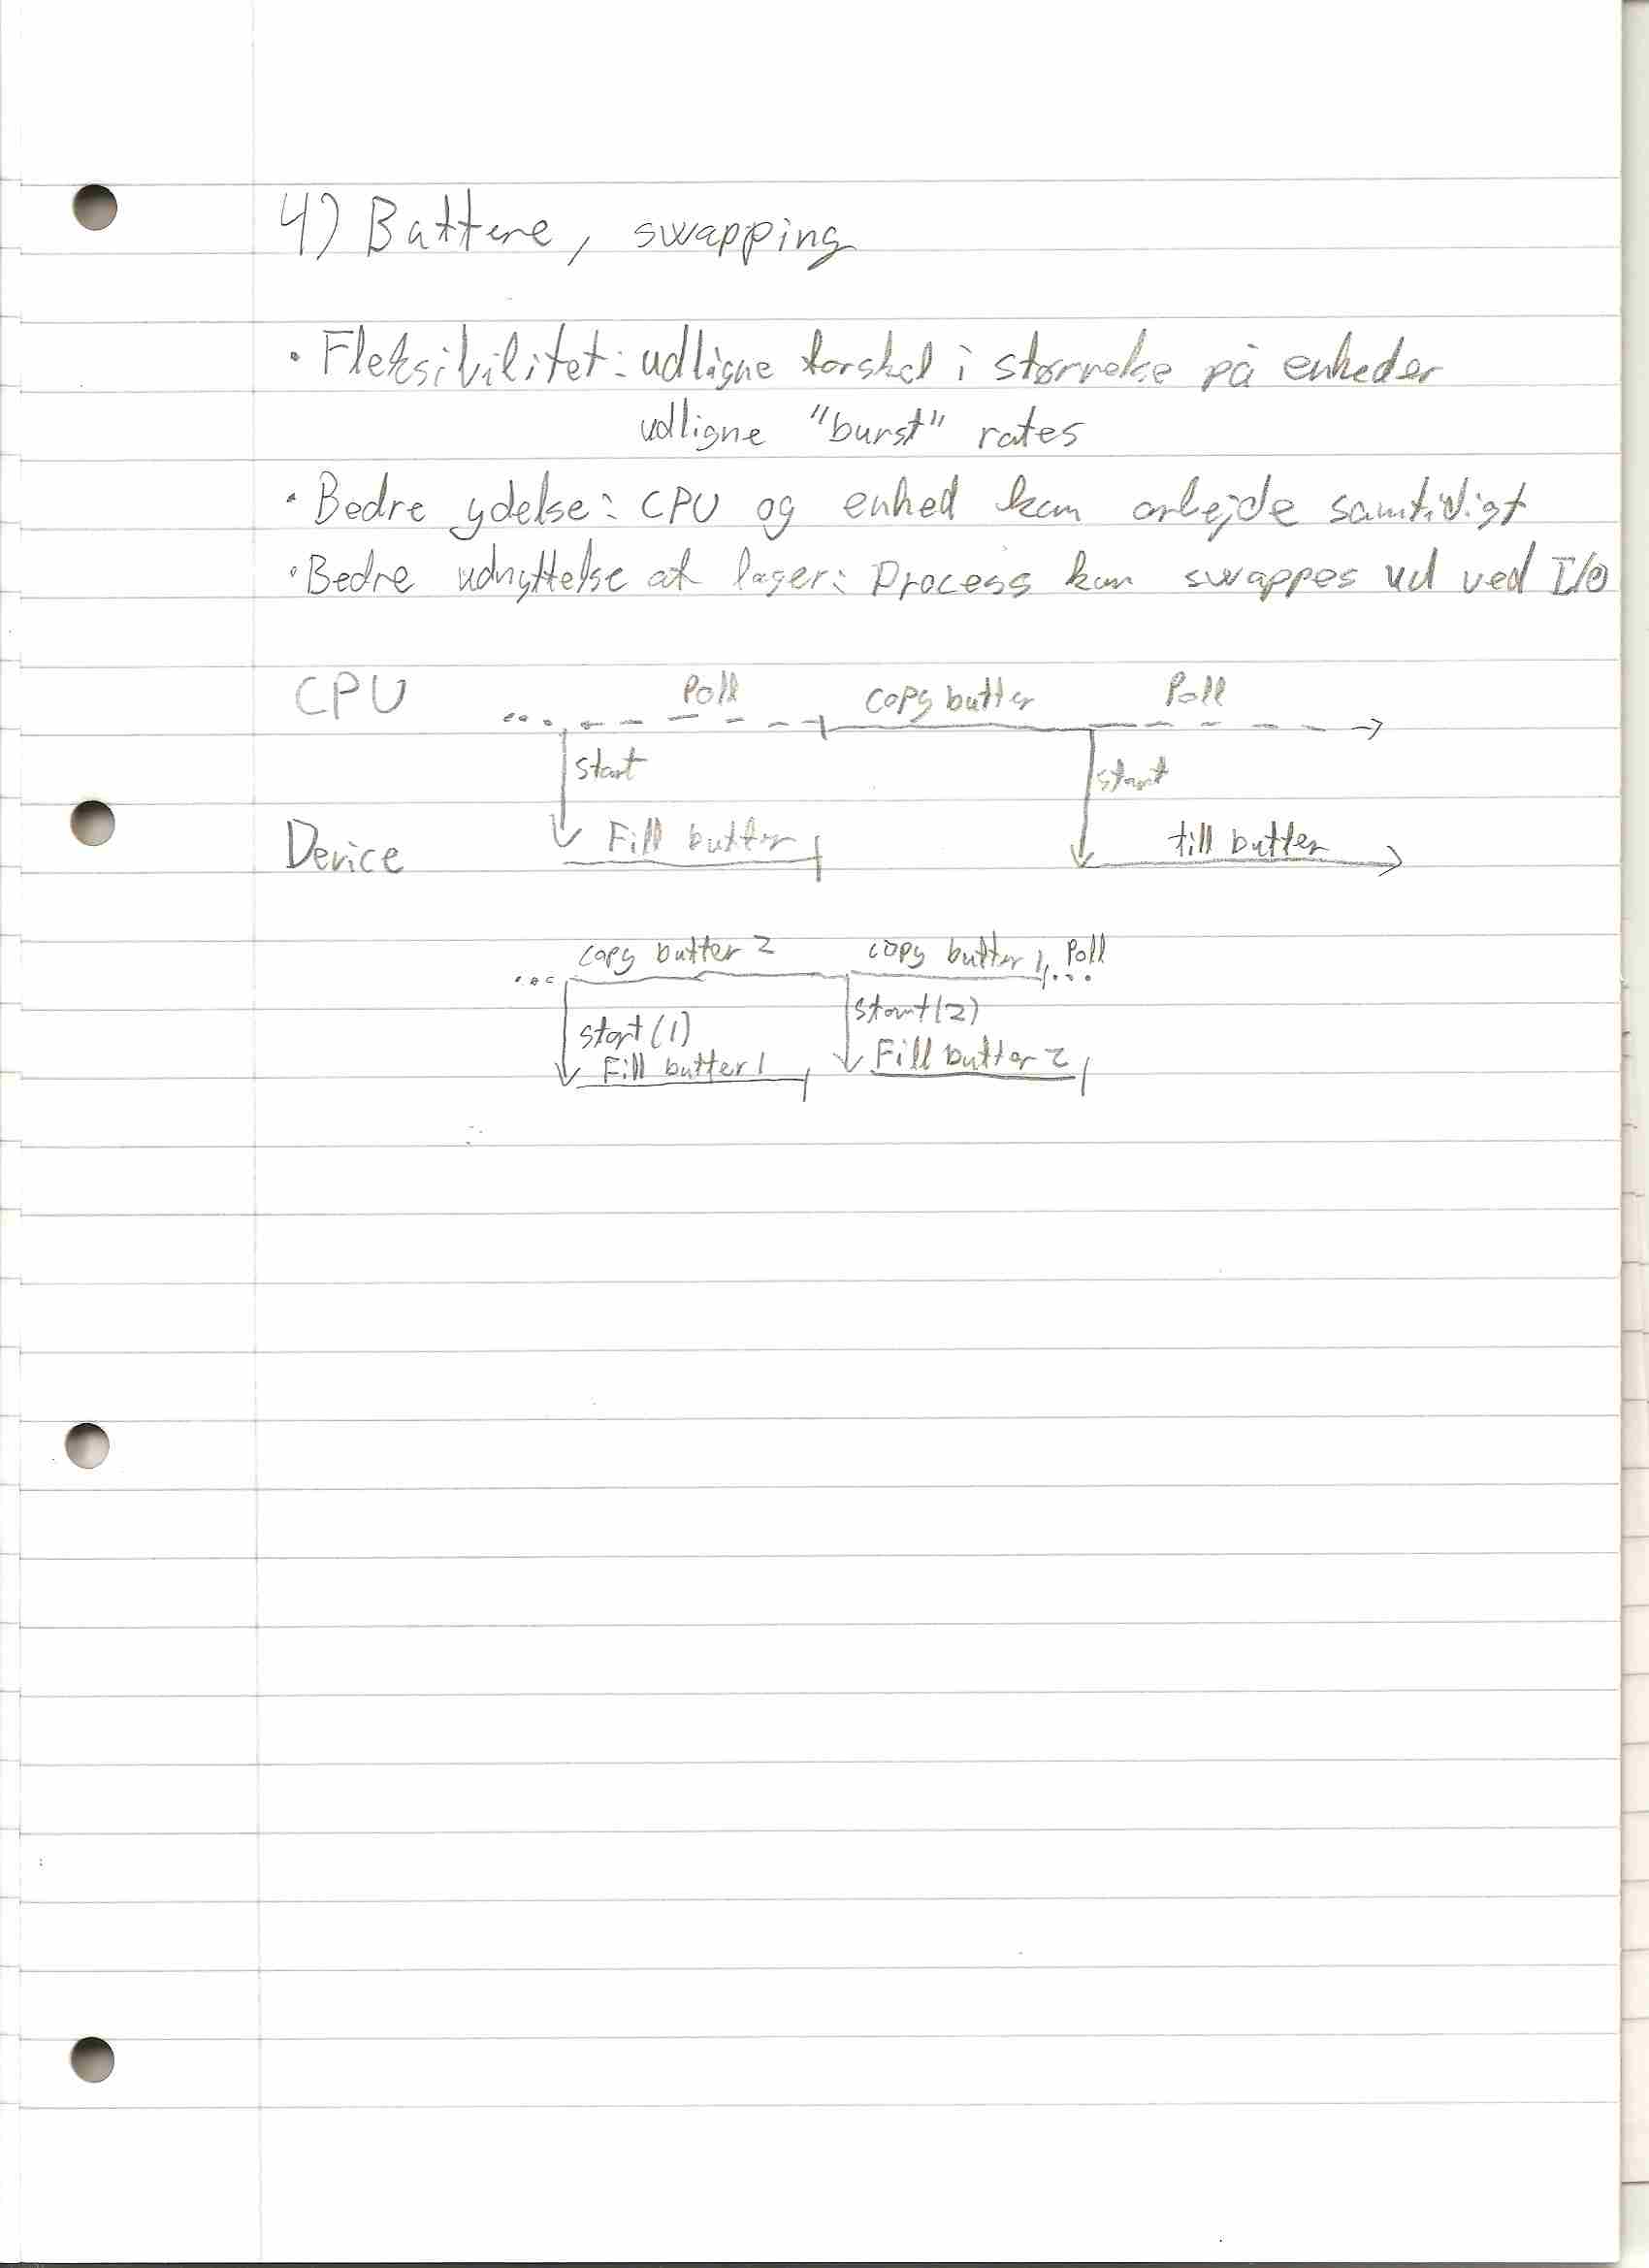 4) Buffere, swapping
• Fleksibilitet: udligne forskel i størrelse på enheder
udligne "burst" rates
• Bedre ydelse: CPU og enhed kan arbejde samtidigt
• Bedre udnyttelse af lager: Process kan swappes ud ved I/O
CPU ... Poll copy buffer Poll
start start
Device Fill buffer fill buffer
... copy buffer 2 copy buffer 1, Poll ...
start(1) start(2)
Fill buffer 1 Fill buffer 2